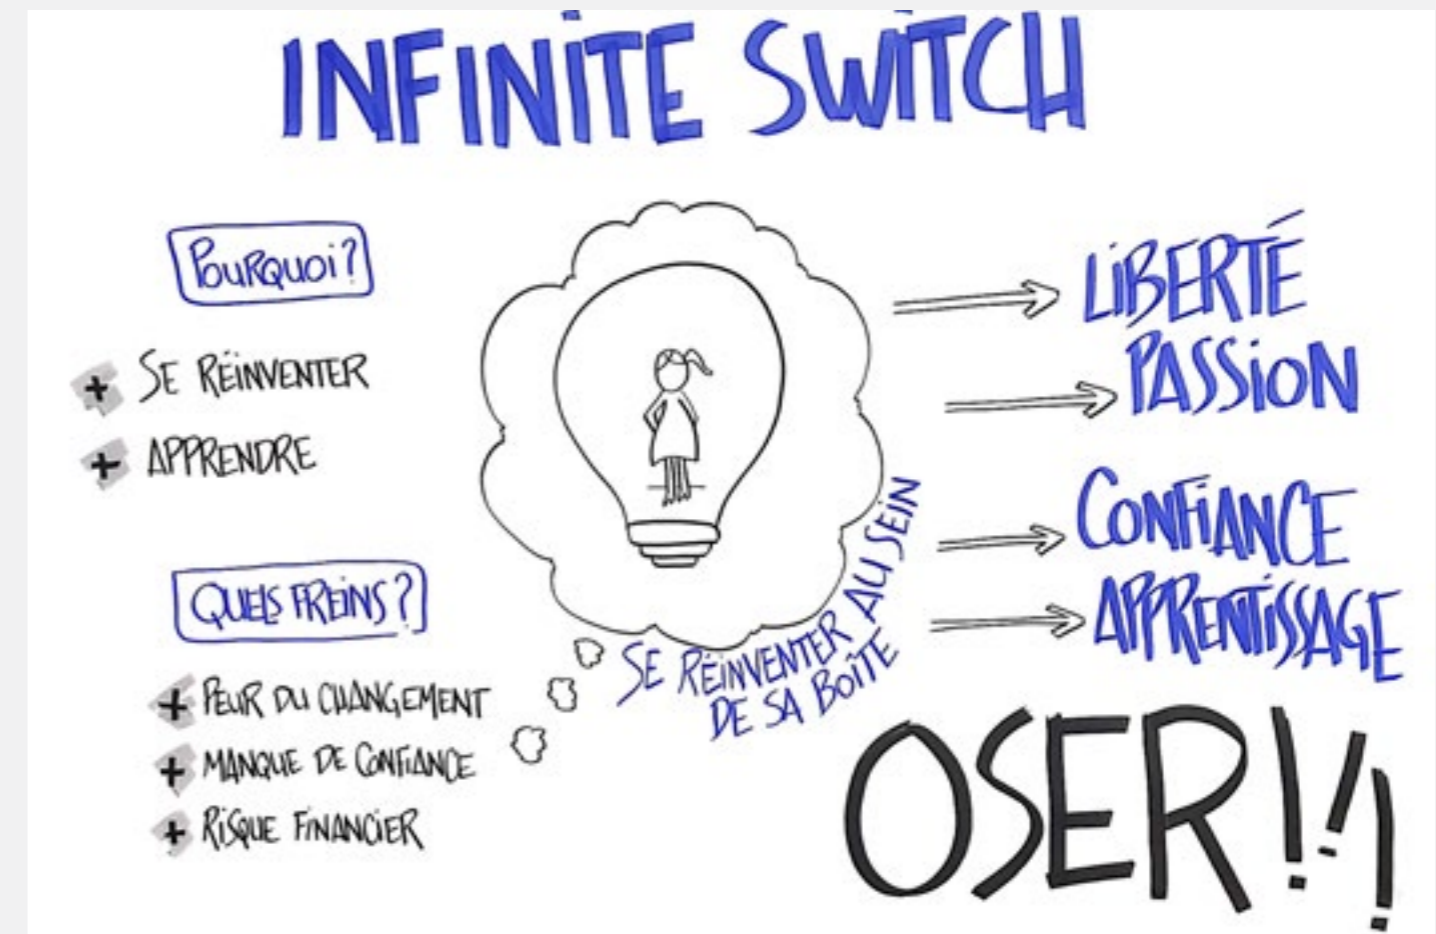 INFINITE SWITCH
POURQUOI?
+ SE RÉINVENTER
+ APPRENDRE
QUELS FREINS?
+ PEUR DU CHANGEMENT
+ MANQUE DE CONFIANCE
+ RISQUE FINANCIER
SE RÉINVENTER AU SEIN
DE SA BOÎTE
LIBERTÉ
PASSION
CONFIANCE
APPRENTISSAGE
OSER!!!